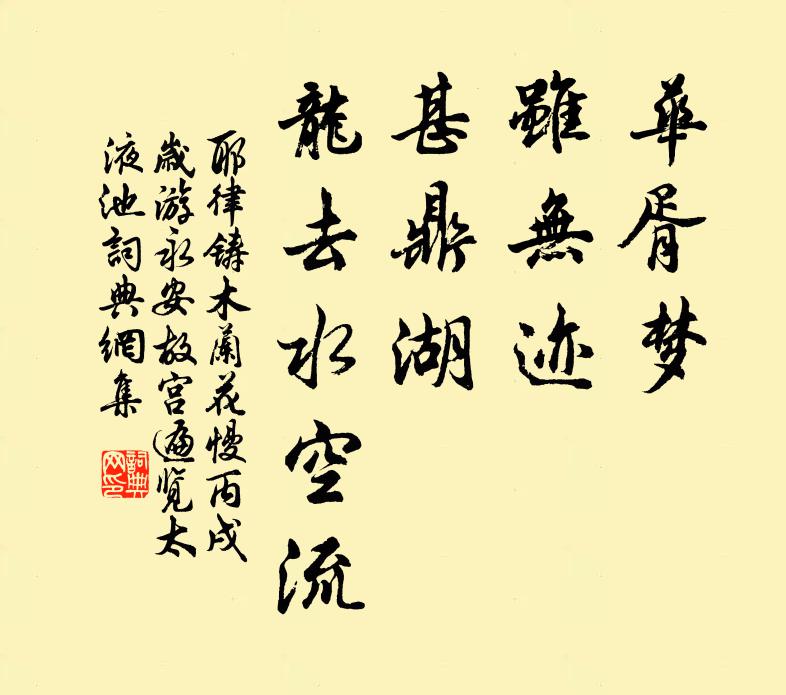 華胥梦
雖無迹
甚鼎湖
龍去水空流
耶律鑄木蘭花慢丙戌
歲游永安故宮遍覽太
液池詞典網集
詞典网印